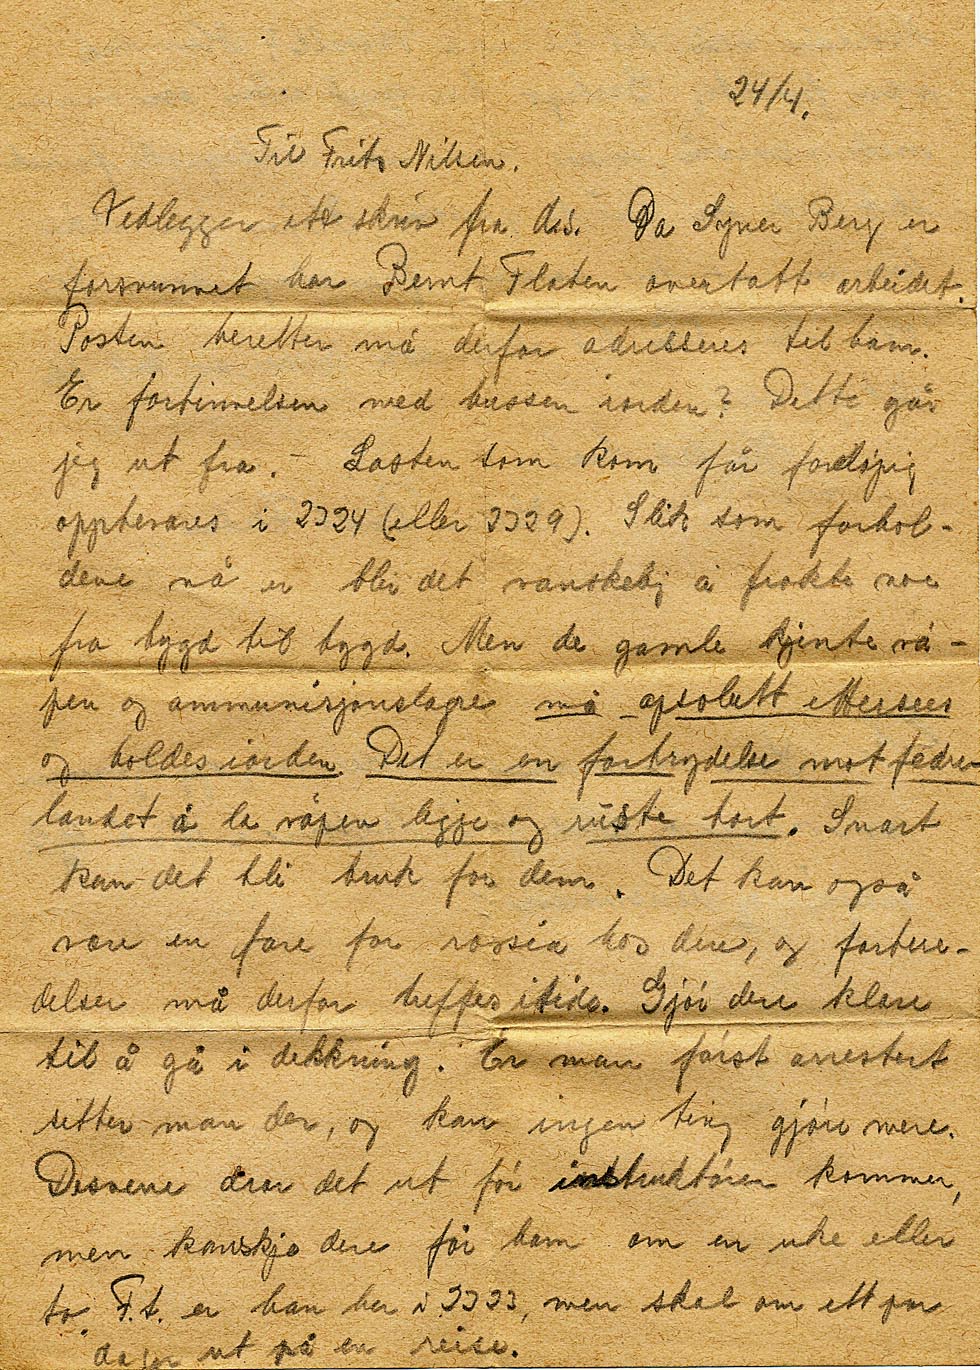 24/4.
Til Frits Nilsen.
Vedlegger ett skriv fra ds. Da Syver Berg er
forsvunnet har Bernt Floten overtatt arbeidet.
Posten heretter må derfor adresseres til ham.
Er forbinnelsen med bussen iorden? Dette går
jeg ut fra. - Lasten som kom får foreløpig
oppbevares i 2324 (eller 2329). Slik som forhol-
dene nå er blir det vanskelig å frakte noe
fra bygd til bygd. Men de gamle kjente vå-
pen og ammunisjonslagre må apsolutt ettersees
og holdes iorden. Det er en forbrydelse mot fedre-
landet å la våpen ligge og ruste bort. Snart
kan det bli bruk for dem. Det kan også
være en fare for razzia hos dere, og forbere-
delser må derfor treffes itide. Gjør dere klare
til å gå i dekkning. Er man først arrestert
sitter man der, og kan ingen ting gjøre mere.
Desverre drar det ut før instruktøren kommer,
men kanskje dere får ham om en uke eller
to. F.t. er han her i 2323, men skal om ett par
dager ut på en reise.